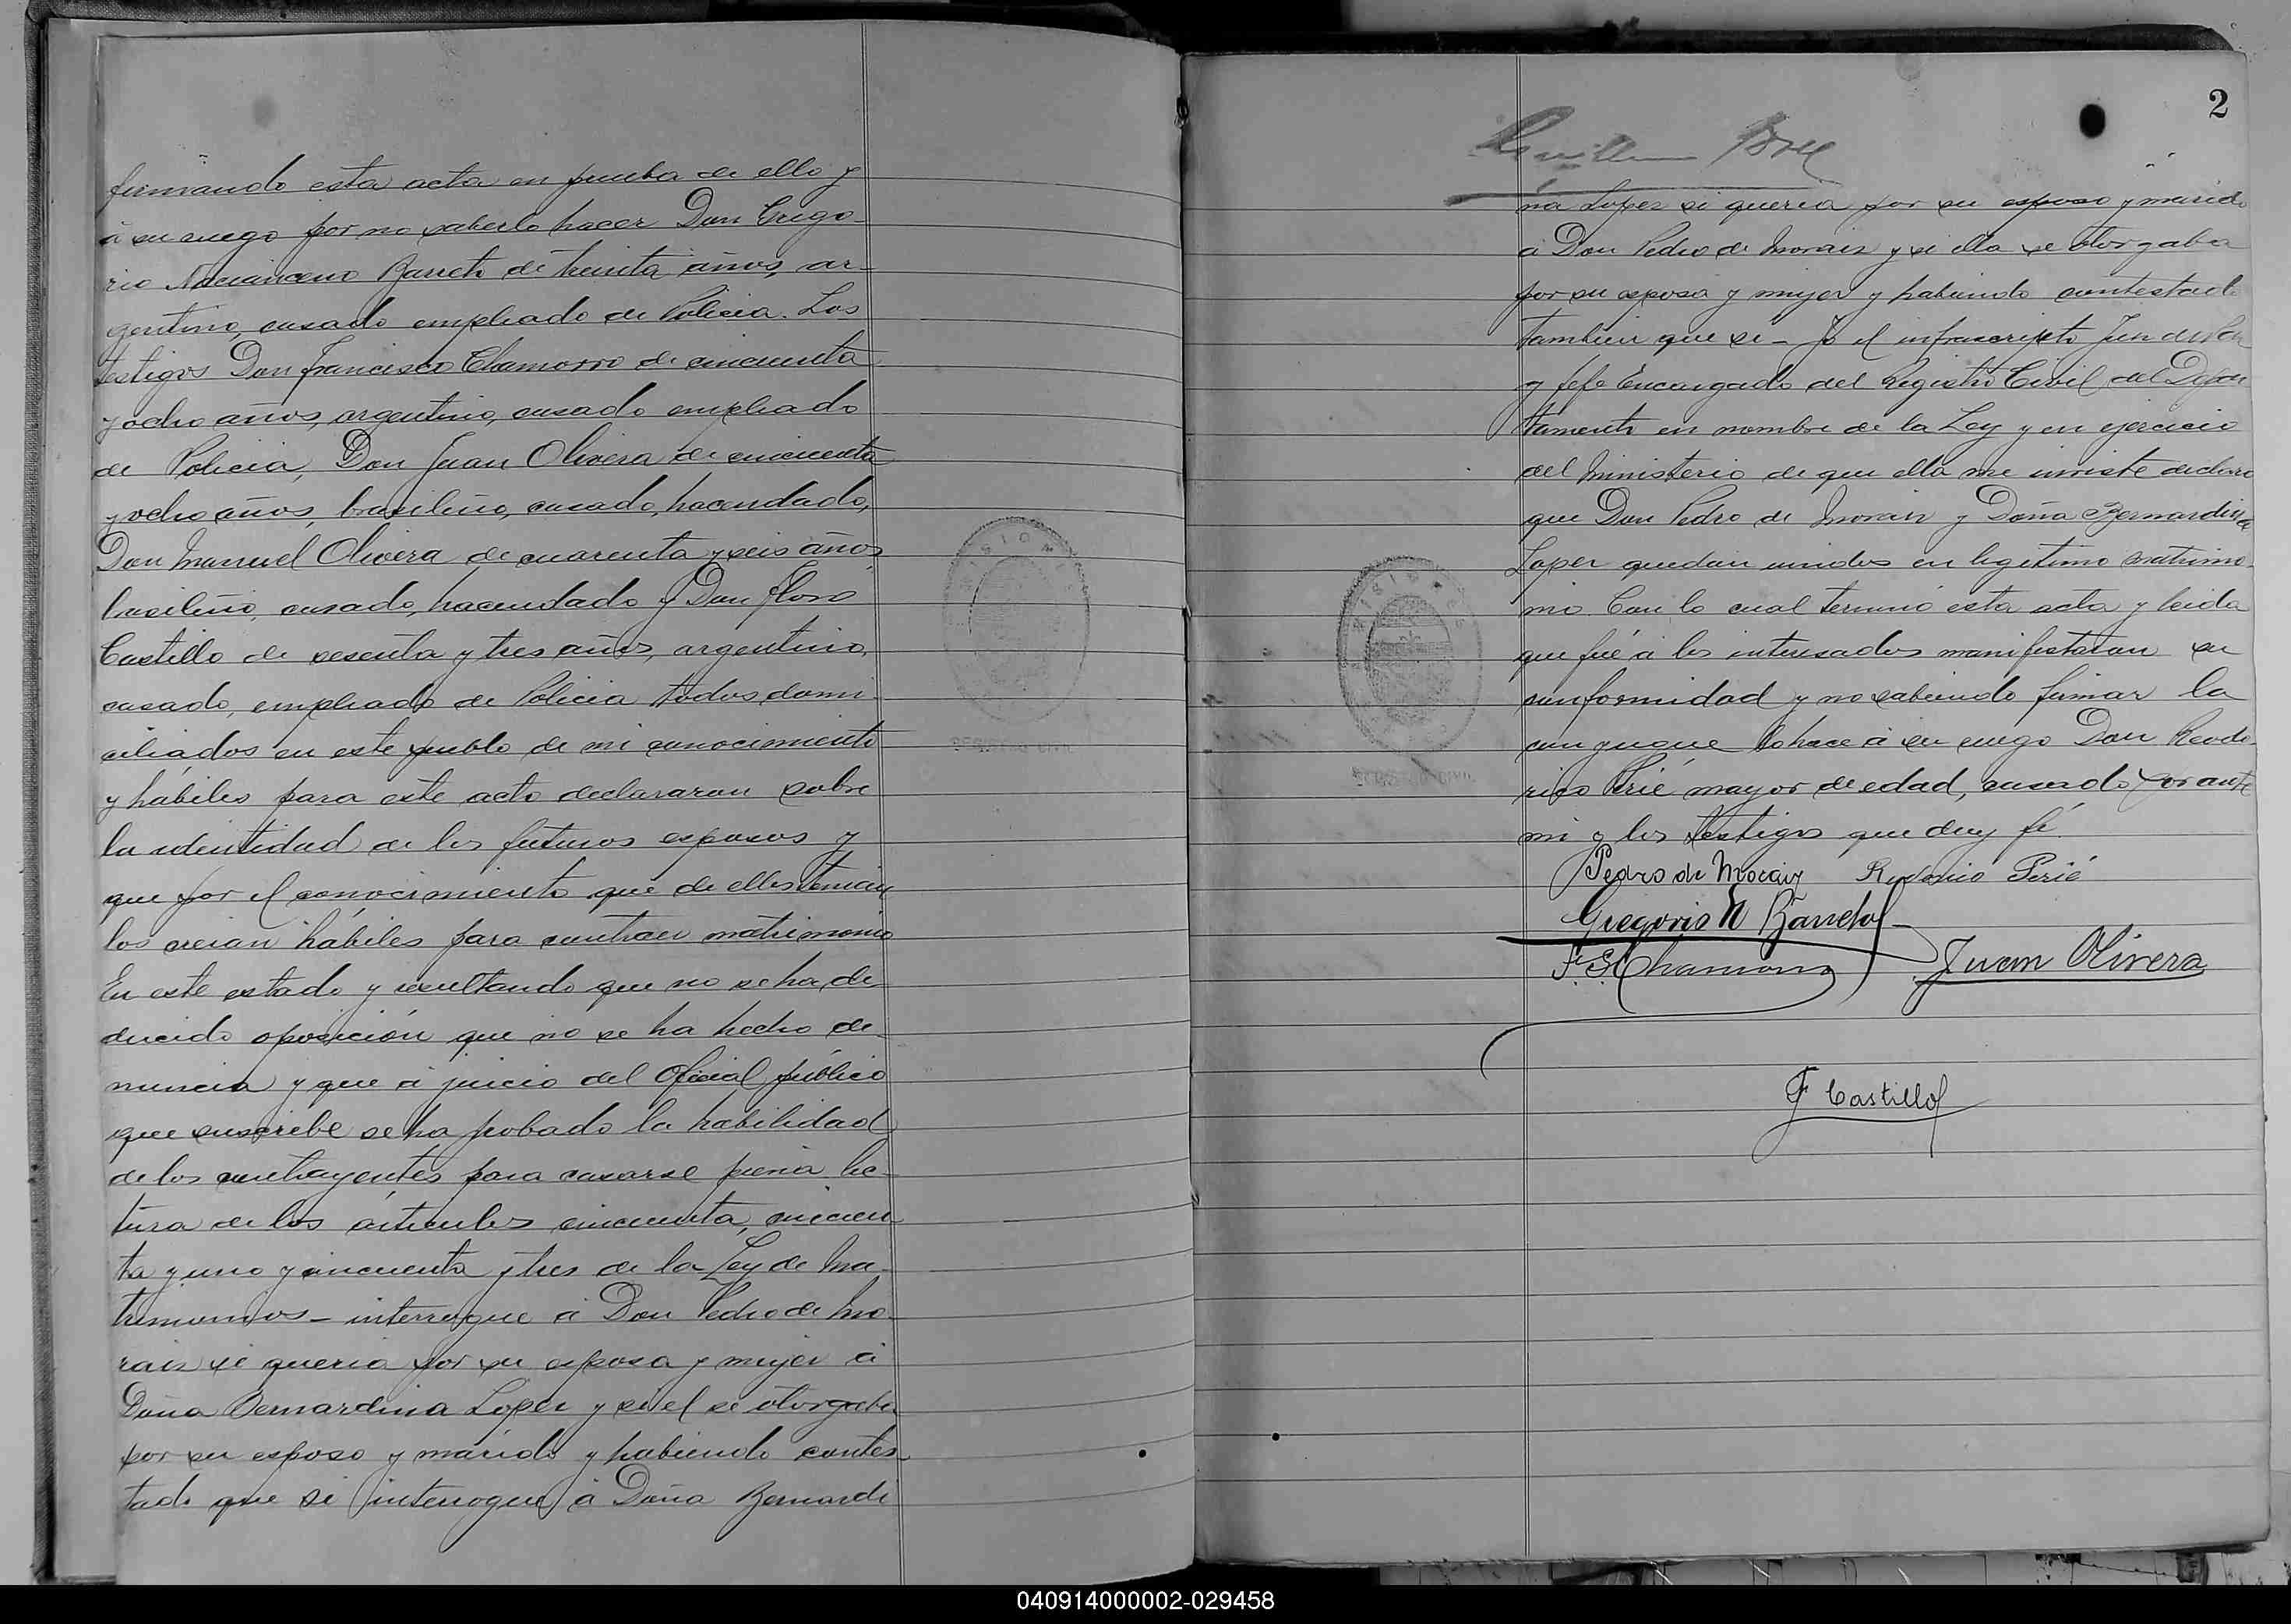 firmando esta acta en prueba de ello y
á su ruego por no saberlo hacer Don Grego-
rio Nacianceno Barreto de treinta años, ar-
gentino, casado empleado de Policia. Los
testigos Don Francisco Chamorro de cincuenta
y ocho años, argentino, casado empleado
de Policia, Don Juan Olivera de cincuenta
y ocho años, brasileño, casado, hacendado,
Don Manuel Olivera de cuarenta y seis años
brasileño, casado, hacendado y Don Floro
Castillo de sesenta y tres años, argentino,
casado, empleado de Policia todos domi-
ciliados en este pueblo de mi conocimiento
y hábiles para este acto declararon sobre
la identidad de los futuros esposos y
que por el conocimiento que de ellos tenian
los creian hábiles para contraer matrimonio
En este estado y resultando que no se ha de-
ducido oposición que no se ha hecho de-
nuncia y que á juicio del Oficial público
que suscribe se ha probado la habilidad
de los contrayentes para casarse previa lec-
tura de los artículos cincuenta, cincuen-
ta y uno y cincuenta y tres de la Ley de Ma-
trimonios - interrogue á Don Pedro de Mo-
raiz si queria por su esposa y mujer á
Doña Bernardina Lopez y si el se otorgaba
por su esposo y marido y habiendo contes-
tado que si interrogue á Doña Bernardi
2
na Lopez si queria por su esposo y marido
á Don Pedro de Moraiz y si ella se otorgaba
por su esposa y mujer y habiendo contestado
tambien que si - Yo el infrascripto Juez de Paz
y Jefe Encargado del Registro Civil del Depar
tamento en nombre de la Ley y en ejercicio
del Ministerio de que ella me inviste declaro
que Don Pedro de Moraiz y Doña Bernardina
Lopez quedan unidos en legitimo matrimo-
nio. Con lo cual terminó esta acta y leida
que fué á los interesados manifestaron su
conformidad y no sabiendo firmar la
conyugue lo hace á su ruego Don Rodo-
rico Perié mayor de edad, casado por ante
mi y los testigos que doy fé.
Pedro de Moraiz Perié
Gregorio N Barreto
F. S. Chamorro Juan Olivera
F Castillo
MISIONES
REGISTRO CIVIL
MISIONES
REGISTRO CIVIL
040914000002-029458